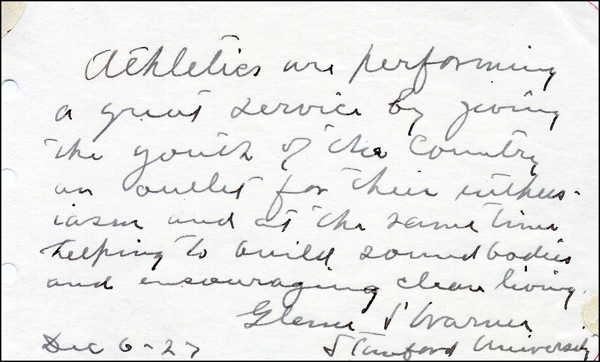 Athletics are performing
a great service by giving
the youth of the country
an outlet for their enthus-
iasm and at the same time
helping to build sound bodies
and encouraging clean living.
Glenn S Warner
Dec 6-27 Stanford University